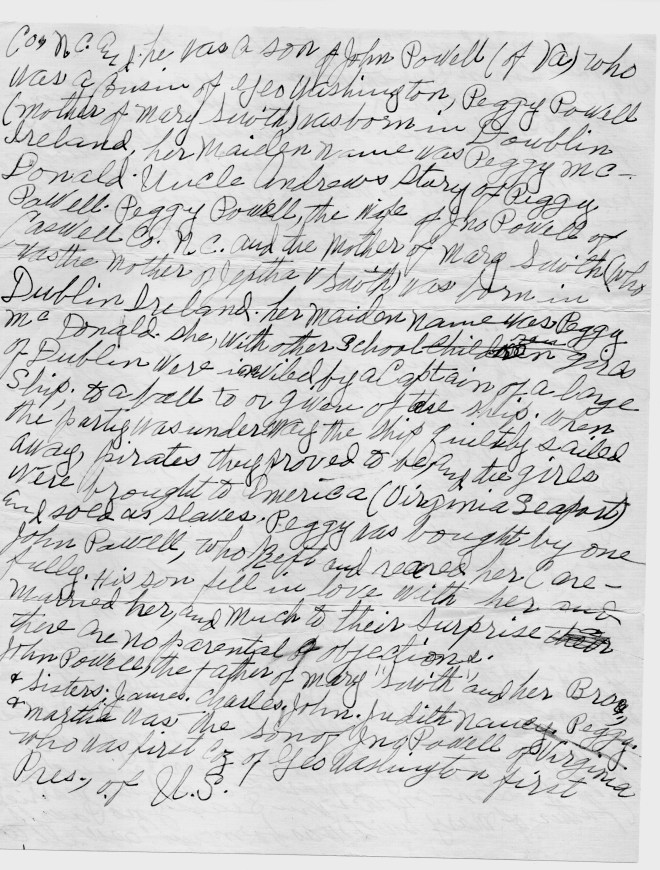 Co, N.C. and he was a son of John Powell (of Va) who
was a Cusin of Geo Washington, Peggy Powell
(mother of Mary Swith) was born in Dowblin
Ireland, her maiden name was Peggy Mc-
Donald. Uncle Andrews Story of Peggy
Powell. Peggy Powell, the wife of Jno Powell of
Caswell Co. N.C. and the mother of Mary Swith (who
was the mother of Jeptha Swith) was born in
Dublin Ireland. her maiden name was Peggy
Mc Donald. She, with other School girls
of Dublin were invited by a Captain of a large
Ship. to a ball to given of ship. when
the party was underway the ship quietly sailed
away, pirates they proved to be, and the girls
were brought to America (Virginia Seaport)
and sold as slaves. Peggy was bought by one
John Powell, who kept and reared her Care-
fully. His son fell in love with her and
married her, and much to their surprise
there are no parental objections.
John Powell, the father of Mary "Swith" and her Bros,
& Sisters. James. Charles. John. Judith Nancy Peggy.
& martha was the son of Jno Powell of Virginia
who was first Coz of Geo Washington first
Pres., of U.S.